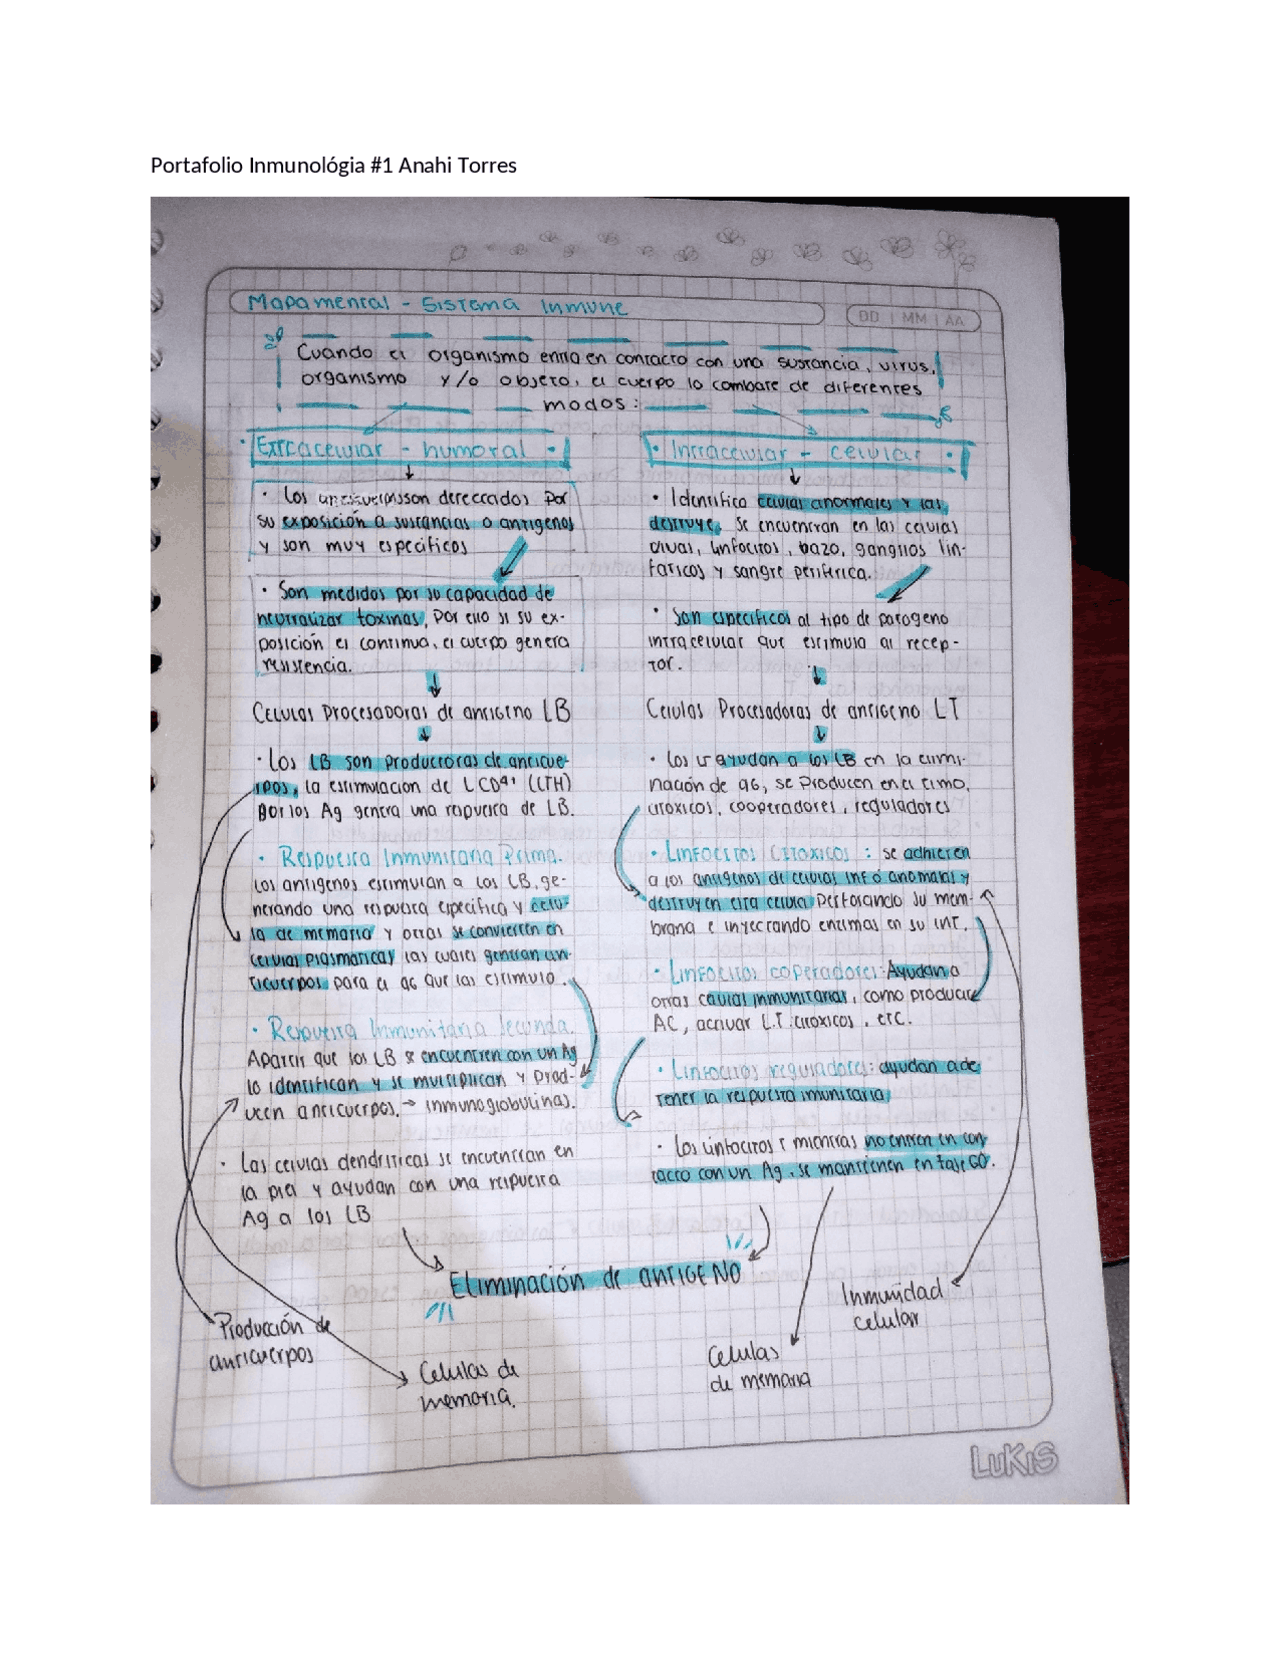 Portafolio Inmunológia #1 Anahi Torres
Mapa mental - Sistema Inmune
DD | MM | AA
Cuando el organismo entra en contacto con una sustancia, virus,
organismo y/o objeto, el cuerpo lo combate de diferentes
modos:
Extracelular - humoral
· Los son detectados por
su exposición a sustancias o antígenos
y son muy específicos
· Son medidos por su capacidad de
neutralizar toxinas, por ello si su ex-
posición es continua, el cuerpo genera
resistencia.
Celulas Procesadoras de antígeno LB
· Los LB son productoras de anticue-
rpos, la estimulación de LCD4+ (LTH)
por los Ag genera una respuesta de LB.
· Respuesta Inmunitaria Prima.
Los antigenos estimulan a los LB, ge-
nerando una respuesta específica y celu-
la de memoria y otras se convierten en
celulas plasmaticas las cuales generan an-
ticuerpos para el ag que las estimulo.
· Respuesta Inmunitaria Secunda.
Apartir que los LB se encuentren con un Ag
lo identifican y se multiplican y prod-
ucen anticuerpos. → inmunoglobulinas.
· Las celulas dendriticas se encuentran en
la piel y ayudan con una respuesta
Ag a los LB
· Intracelular - celular ·
· Identifica celulas anormales y las
destruye. Se encuentran en las celulas
vivas, linfocitos, bazo, ganglios lin-
faticos y sangre periferica.
· Son especificos al tipo de patogeno
intracelular que estimula al recep-
tor.
Celulas Procesadoras de antigeno LT
· Los LT ayudan a los LB en la elimi-
nación de ag, se producen en el timo,
citoxicos, cooperadores, reguladores
· Linfocitos Citoxicos : se adhieren
a los antigenos de celulas inf o anomalas y
destruyen esta celula perforando su mem-
brana e inyectando enzimas en su int.
· Linfocitos coperadores: Ayudan a
otras celulas inmunitarias, como producir
AC, activar L.T. citoxicos, etc.
· Linfocitos reguladores: ayudan a de
tener la respuesta imunitaria
· Los linfocitos t mientras no entren en con
tacto con un Ag, se mantienen en fase G0.
Eliminación de antigeno
Producción de
anticuerpos
Celulas de
memoria.
Celulas
de memoria
Inmunidad
celular
LUKIS